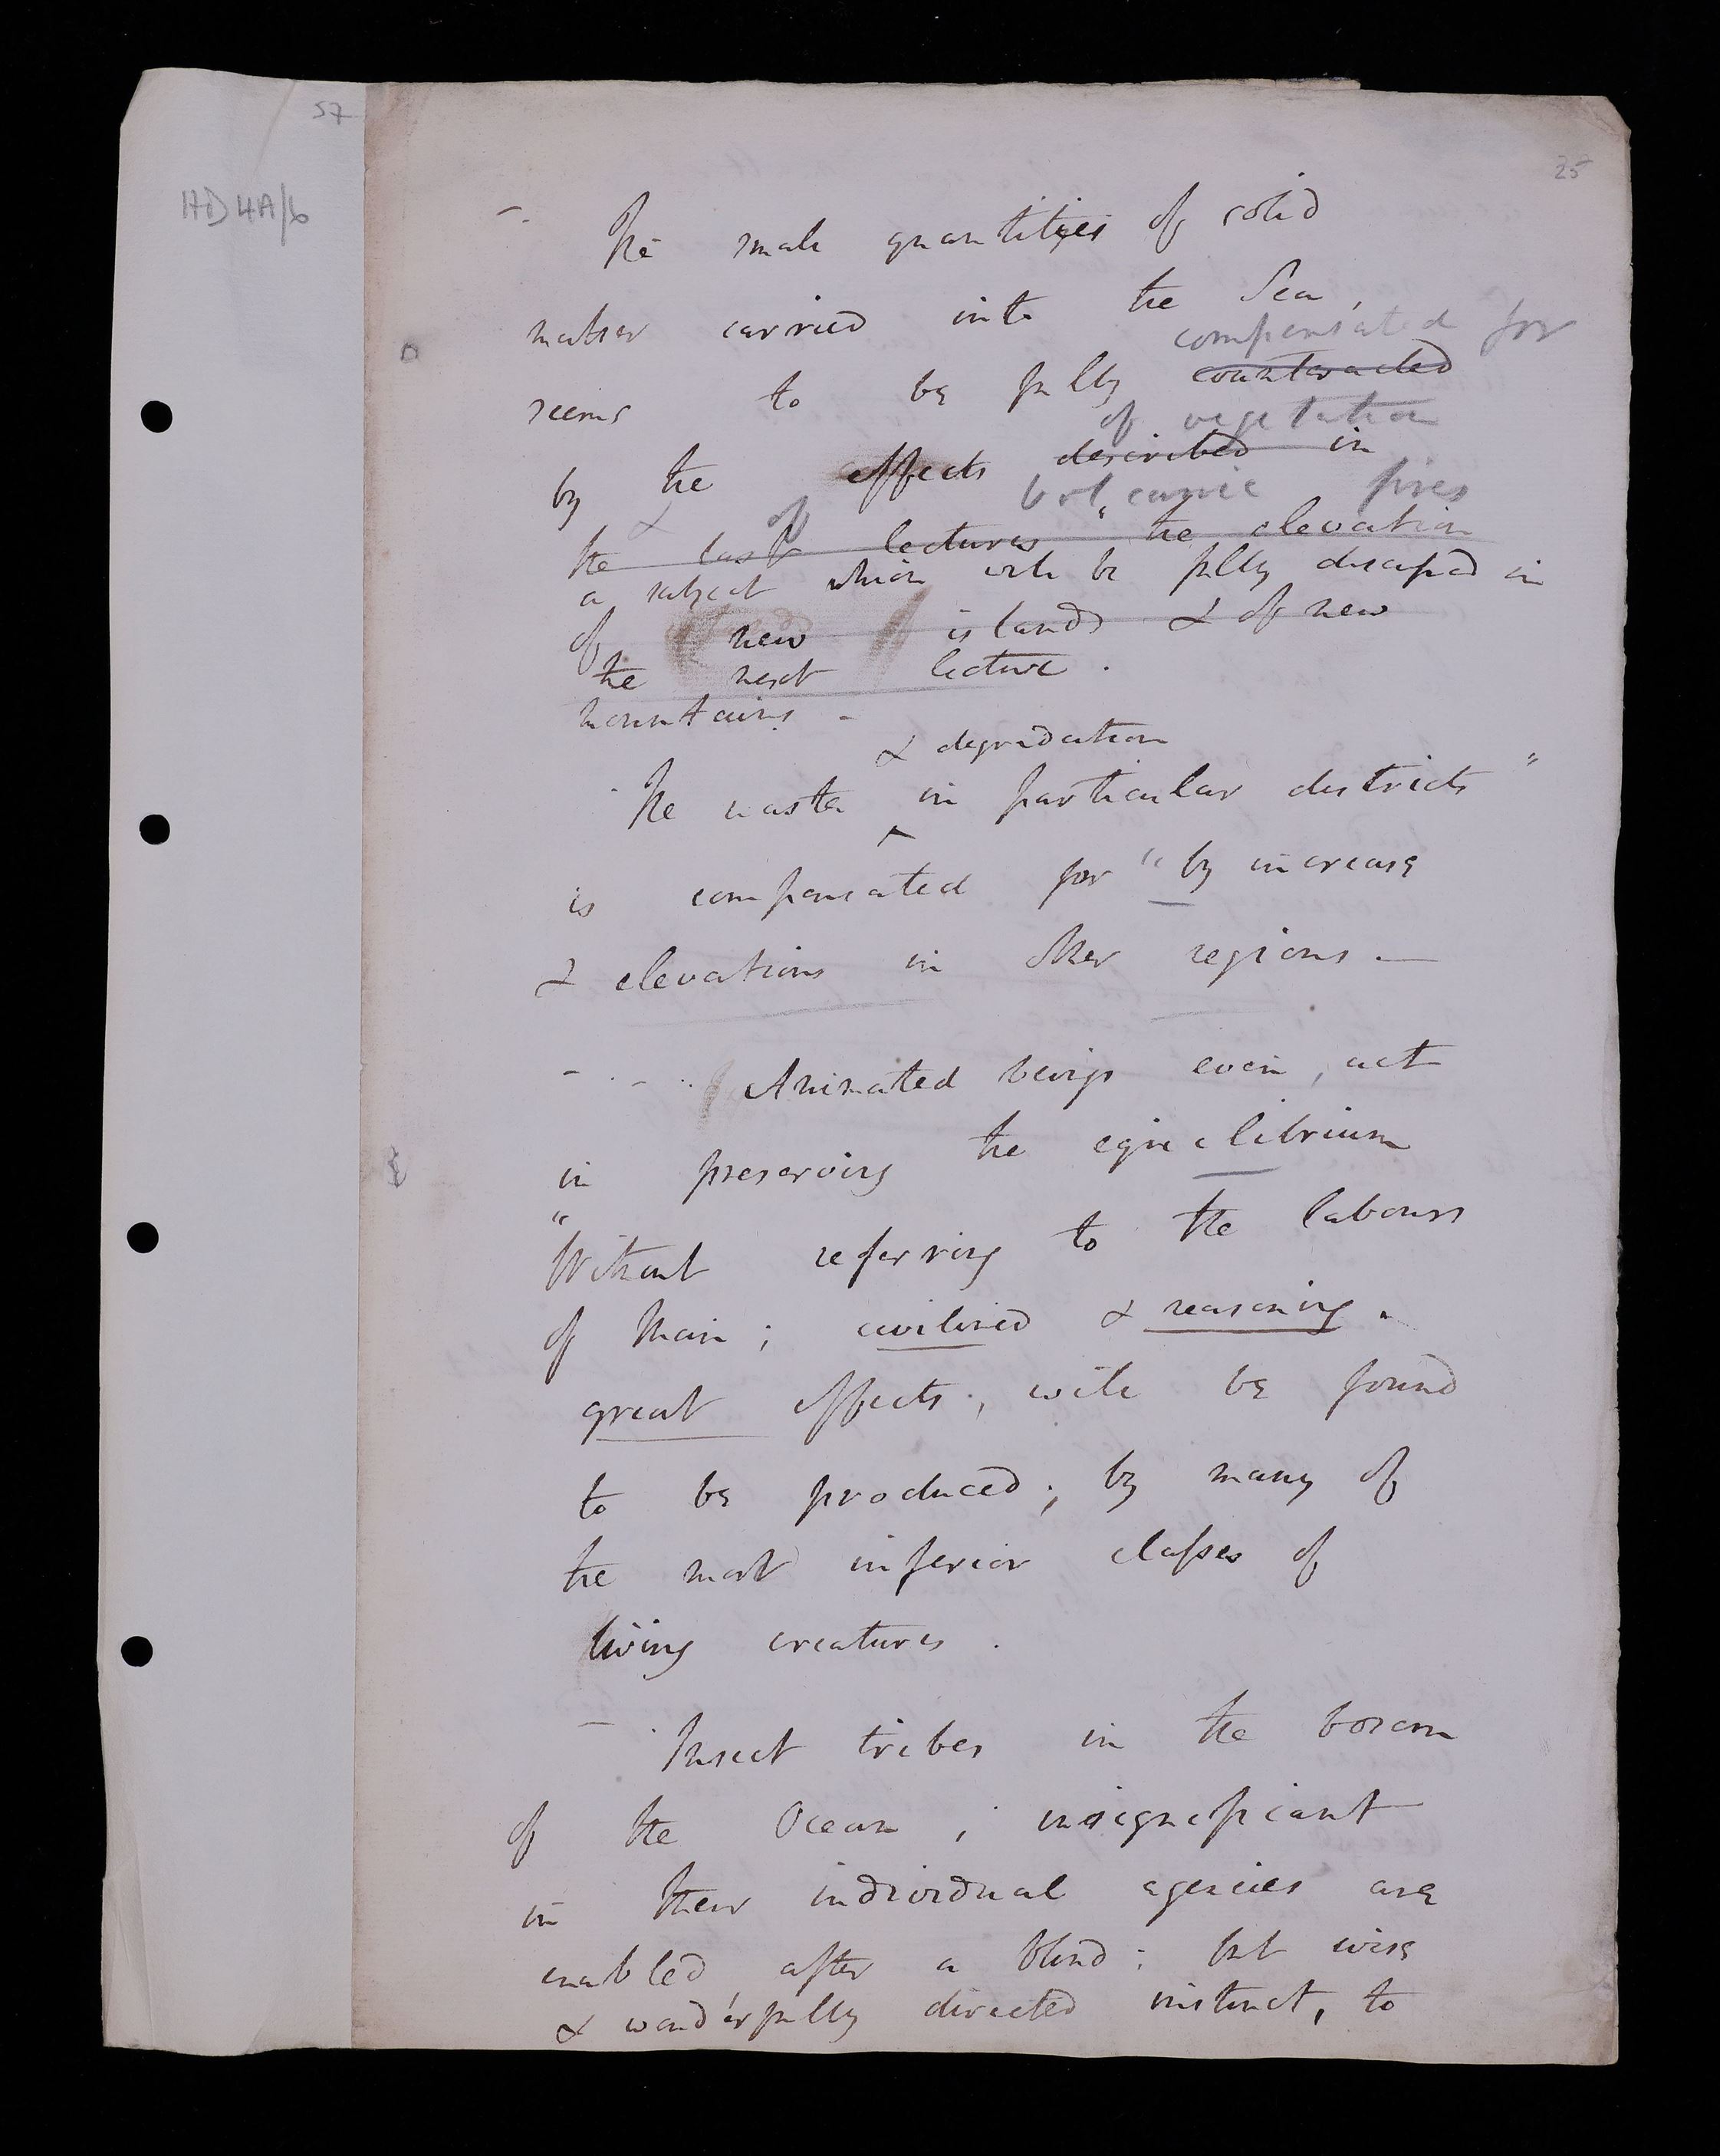 57
25
HD 4A/6
- The small quantities of solid
matter carried into the Sea,
compensated for
seems to be fully counteracted
of vegetation
by the effects described in
& of volcanic fires
the last lectures "the elevation
a subject which will be fully discussed in
of new islands & of new
the next lecture.
mountains. -
& degradation
The waste in particular districts "
is compensated for " by increase
& elevations in other regions. —
Animated beings even, act
in preserving the equilibrium
"Without referring to the labours
of Man; civilised & reasoning.
great effects; will be found
to be produced; by many of
the most inferior classes of
living creatures.
- Insect tribes in the bosom
of the Ocean; insignificant
in their individual agencies are
enabled after a blind; but wise
& wonderfully directed instinct, to